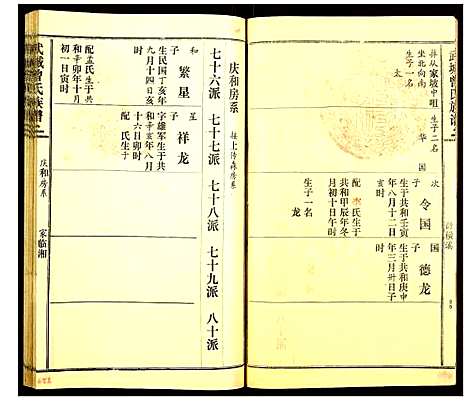 武城曾氏族谱
葬从家坡中咀
坐北向南
生子一名
太
生子二名
华
国
次子
令国
生于共和壬寅
年八月十二日
亥时
配李氏生于
共和甲辰年冬
月初十日午时
生子一名
龙
国子
德龙
生于共和庚申
年三月卅日子
时
庆和房系
接上传森房系
七十六派 七十七派 七十八派 七十九派 八十派
和子
繁星
生民国丁亥年
九月十四日亥
时
配孟氏生于共
和辛卯年十月
初一日寅时
星子
祥龙
字雄军生于共
和辛亥年八月
十六日卯时
配 氏生于
武城曾氏族谱
庆和房系
家临湘